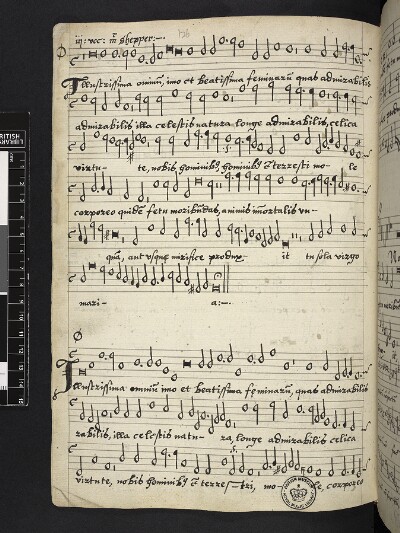 iij: voc: mr shepper:-
126
Illustrissima omniũ, imo et beatissima feminarũ, quas admirabilis
admirabilis illa celestis natura, longe admirabilis, celica
virtu- te, nobis hominibꝰ hominibꝰ e terresti mo- le
corporeo quidẽ fetu moribũdas, animis ĩmortalis vn-
quã, aut vsque mirifice produx- it tu sola virgo
mari- a:-
Illustrissima omniũ imo et beatissima feminarũ, quas admirabilis
rabilis, illa celestis natu- ra, longe admirabilis celica
virtute, nobis hominibꝰ e terre- tri, mo- le, corporeo
BRITISH
LIBRARY